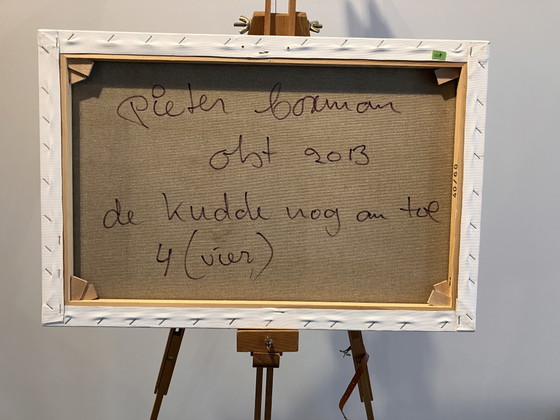 pieter boxman
okt 2013
de kudde nog an toe
4 (vier)
40/60